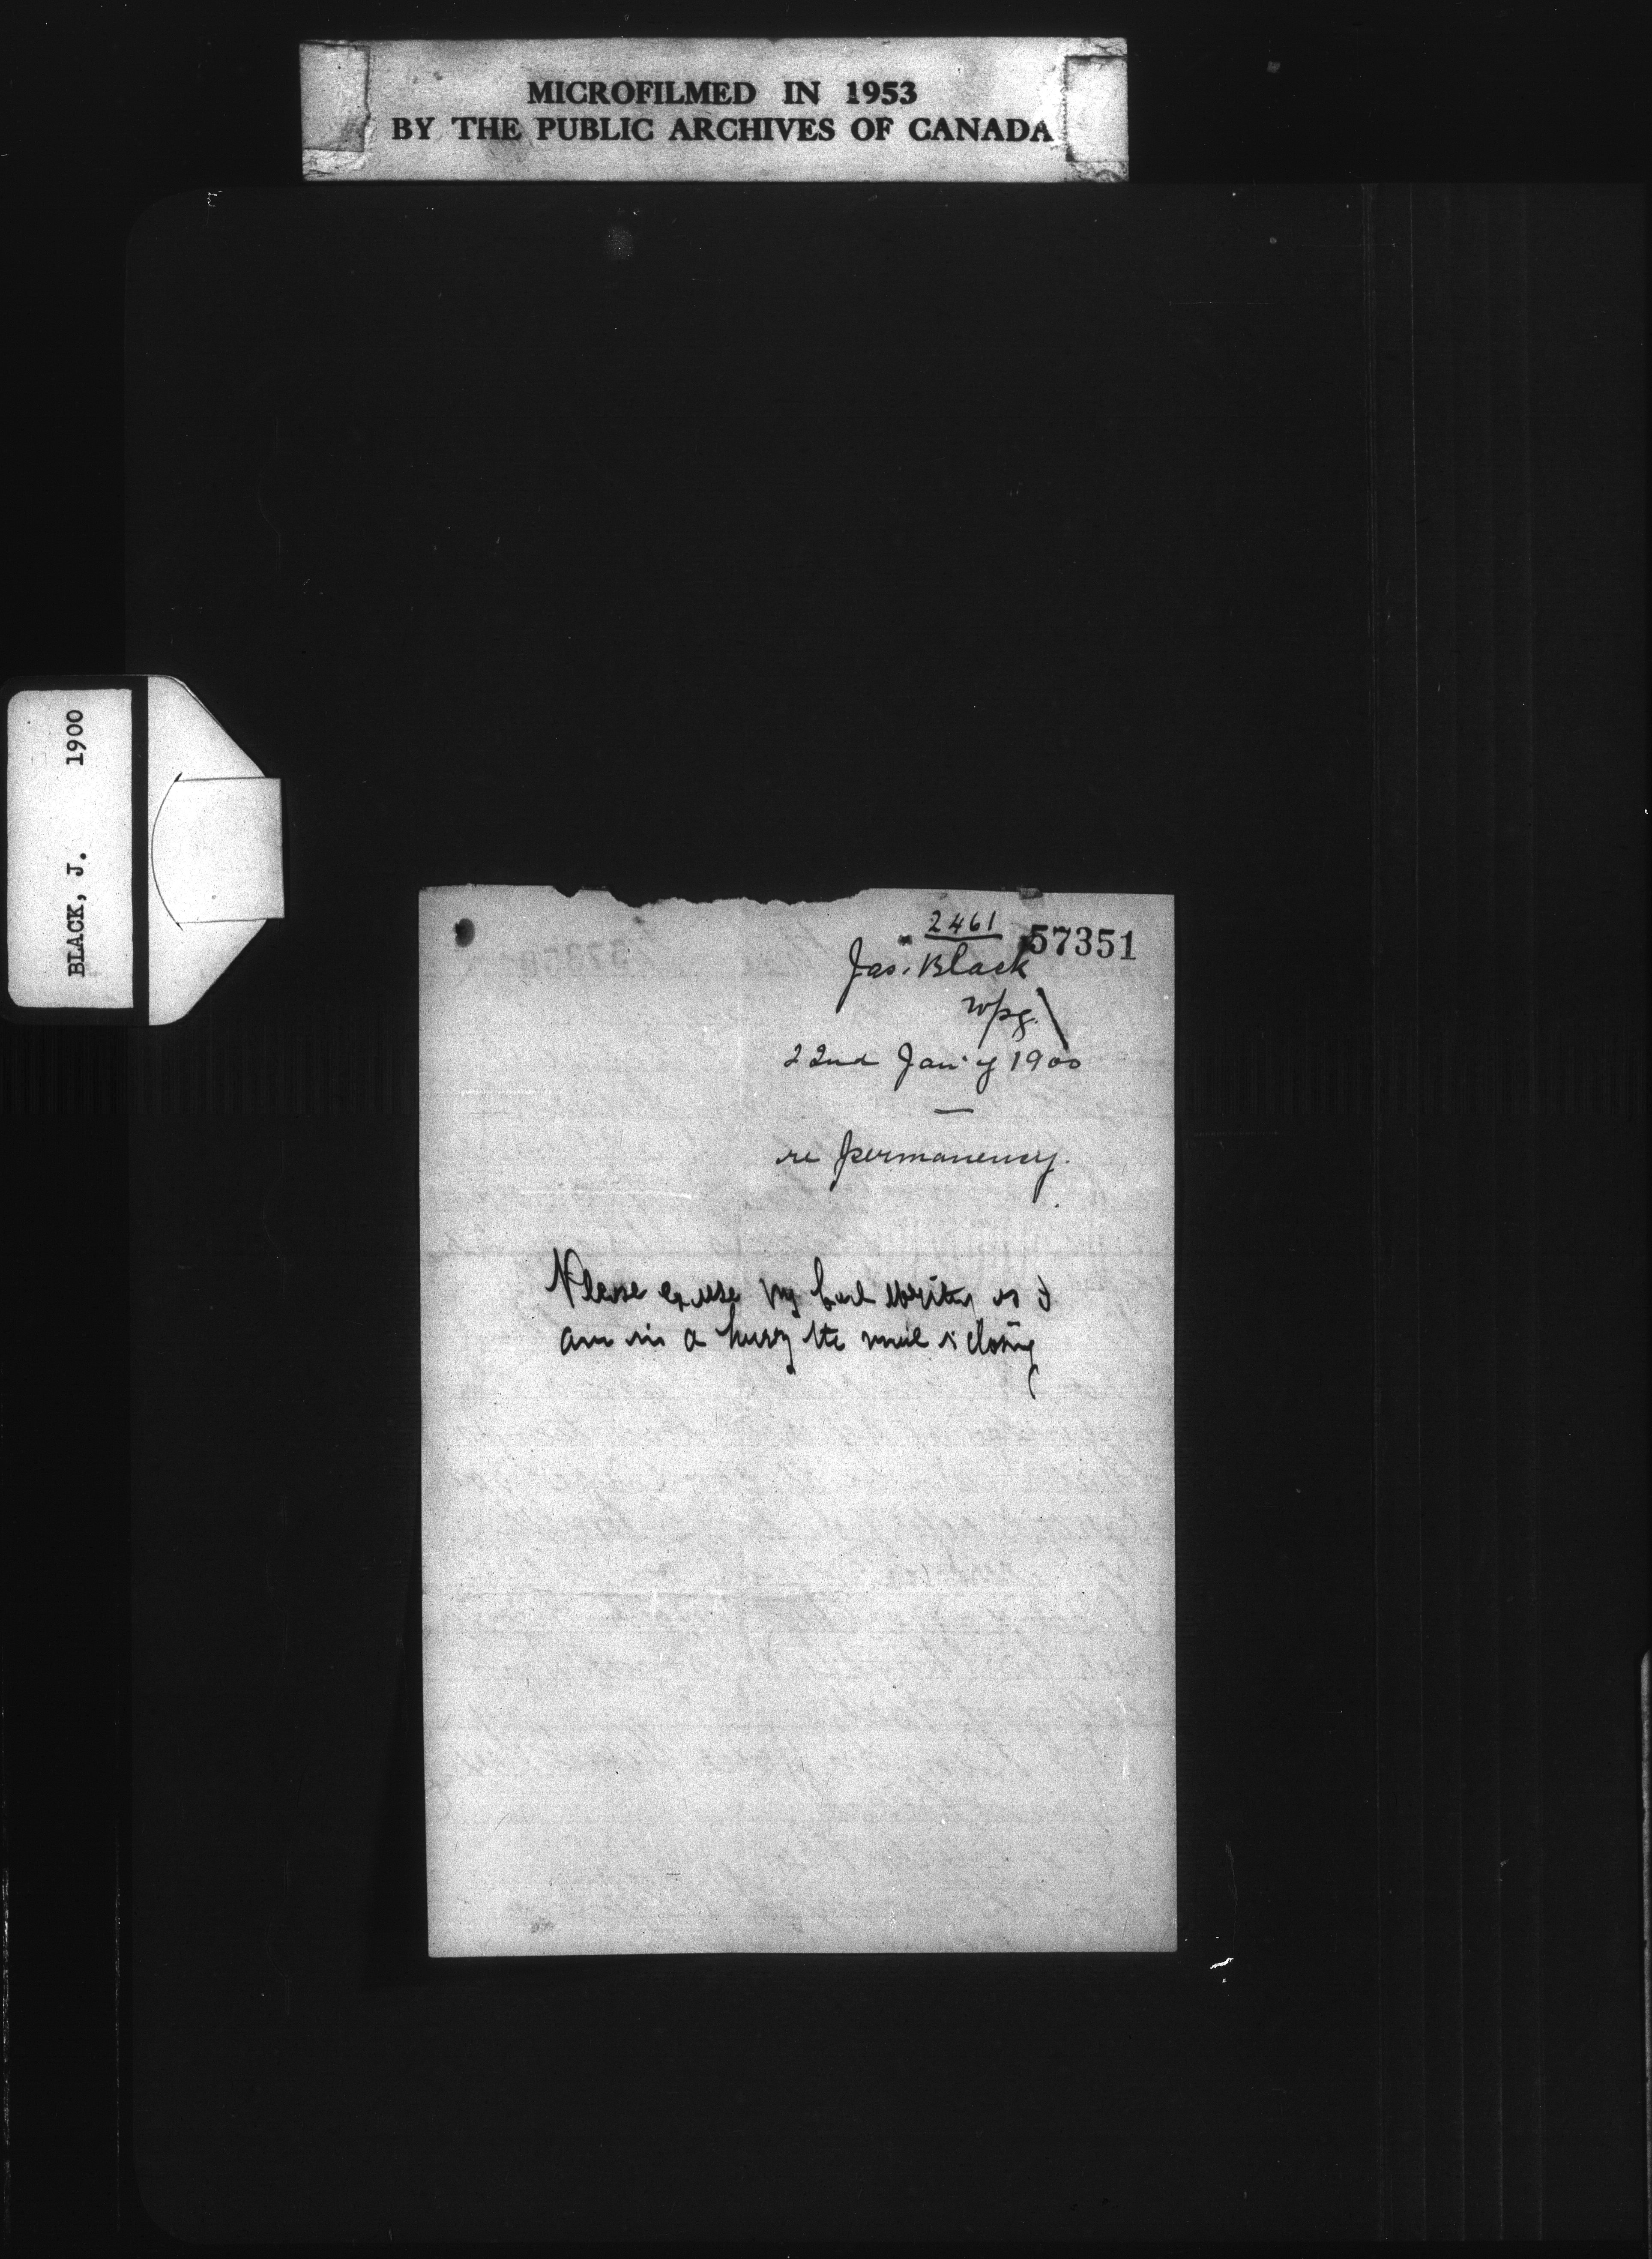 MICROFILMED IN 1953
BY THE PUBLIC ARCHIVES OF CANADA
BLACK, J. 1900
2461
57351
Jas. Black
Wpg.
22nd Jan'y 1900
re permanency.
Please excuse my bad writing as I
am in a hurry the mail is closing